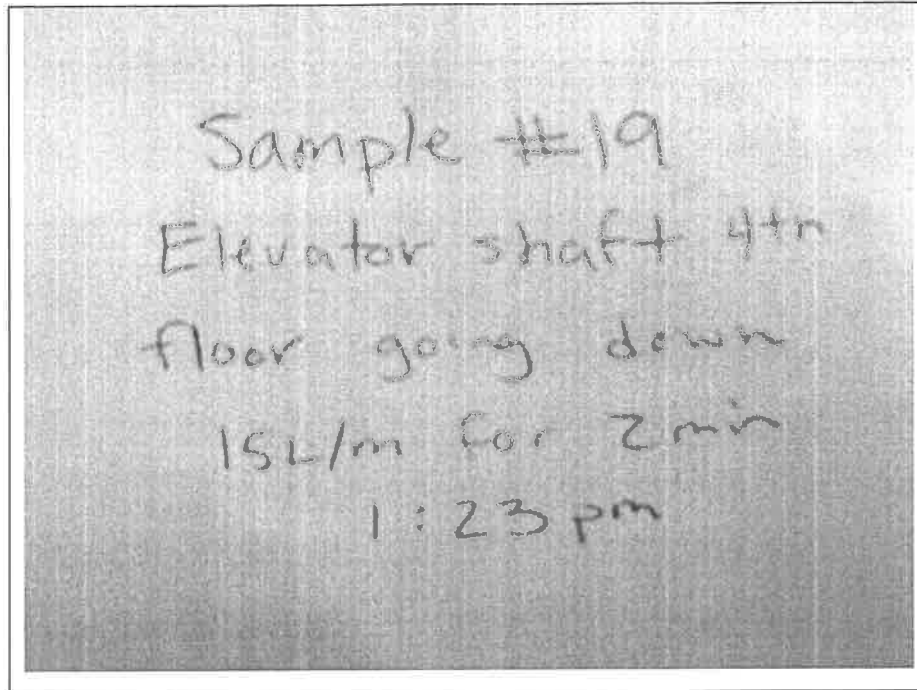 Sample #19
Elevator shaft 4th
floor going down
15L/m for 2min
1:23pm